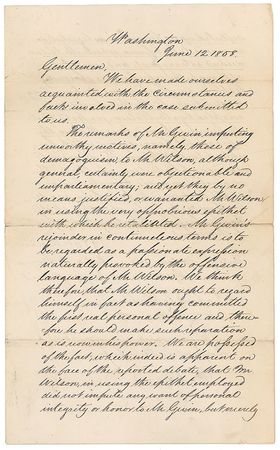 Washington
June 12. 1858.
Gentlemen,
We have made ourselves
acquainted with the circumstances and
facts involved in the case submitted
to us.
The remarks of Mr. Gwin, imputing
unworthy motives, namely those of
demagoguism to Mr. Wilson, although
general, certainly were objectionable and
unparliamentary; and yet they by no
means justified, or warranted Mr. Wilson
in using the very opprobrious epithet
with which he retaliated. Mr. Gwin's
rejoinder in contumelious terms is to
be regarded as a passionate expression
naturally provoked by the offensive
language of Mr. Wilson. We think
therefore, that Mr. Wilson ought to regard
himself in fact as having committed
the first real personal offence and there-
fore he should make such reparation
as is now in his power. We are possessed
of the fact, which indeed is apparent on
the face of the reported debate, that Mr.
Wilson, in using the epithet employed
did not impute any want of personal
integrity or honor to Mr. Gwin, but merely